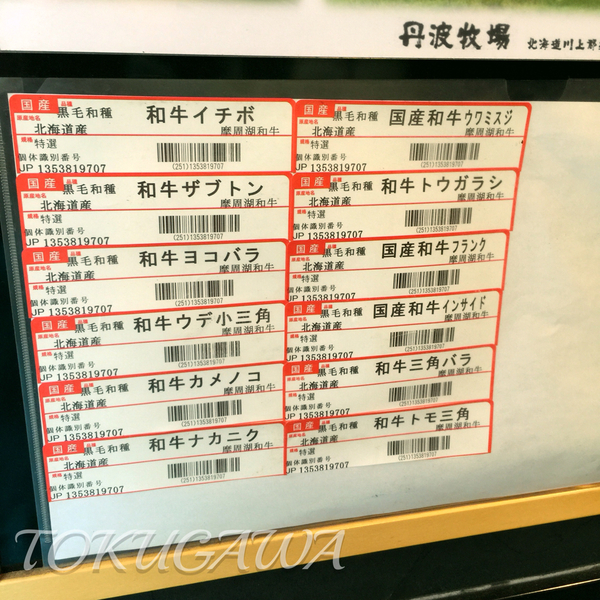 丹波牧場 北海道川上郡
国産 品種 黒毛和種 和牛イチボ
原産地名 北海道産 摩周湖和牛
規格 特選
個体識別番号
JP 1353819707 (251)1353819707
国産 品種 黒毛和種 和牛ザブトン
原産地名 北海道産 摩周湖和牛
規格 特選
個体識別番号
JP 1353819707 (251)1353819707
国産 品種 黒毛和種 和牛ヨコバラ
原産地名 北海道産 摩周湖和牛
規格 特選
個体識別番号
JP 1353819707 (251)1353819707
国産 品種 黒毛和種 和牛ウデ小三角
原産地名 北海道産 摩周湖和牛
規格 特選
個体識別番号
JP 1353819707 (251)1353819707
国産 品種 黒毛和種 和牛カメノコ
原産地名 北海道産 摩周湖和牛
規格 特選
個体識別番号
JP 1353819707 (251)1353819707
国産 品種 黒毛和種 和牛ナカニク
原産地名 北海道産 摩周湖和牛
規格 特選
個体識別番号
JP 1353819707 (251)1353819707
国産 品種 黒毛和種 国産和牛ウワミスジ
原産地名 北海道産 摩周湖和牛
規格 特選
個体識別番号
JP 1353819707 (251)1353819707
国産 品種 黒毛和種 和牛トウガラシ
原産地名 北海道産 摩周湖和牛
規格 特選
個体識別番号
JP 1353819707 (251)1353819707
国産 品種 黒毛和種 国産和牛フランク
原産地名 北海道産 摩周湖和牛
規格 特選
個体識別番号
JP 1353819707 (251)1353819707
国産 品種 黒毛和種 国産和牛インサイド
原産地名 北海道産 摩周湖和牛
規格 特選
個体識別番号
JP 1353819707 (251)1353819707
国産 品種 黒毛和種 和牛三角バラ
原産地名 北海道産 摩周湖和牛
規格 特選
個体識別番号
JP 1353819707 (251)1353819707
国産 品種 黒毛和種 和牛トモ三角
原産地名 北海道産 摩周湖和牛
規格 特選
個体識別番号
JP 1353819707 (251)1353819707
TOKUGAWA